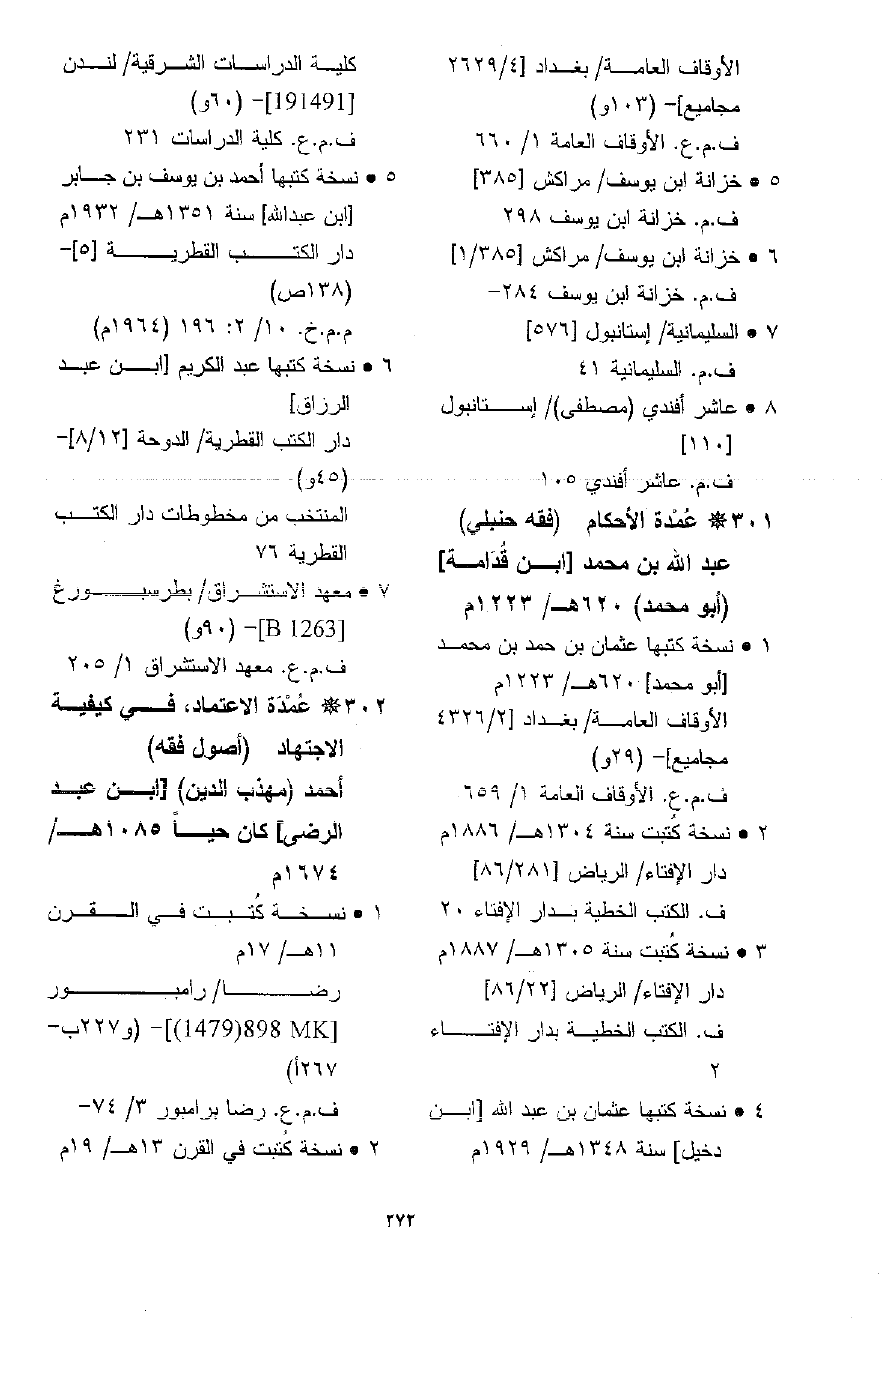 الأوقاف العامة/ بغداد [٢٦٢٩/٤
مجاميع]- (١٠٣و)
ف.م.ع. الأوقاف العامة ١/ ٦٦٠
٥ • خزانة ابن يوسف/ مراكش [٣٨٥]
ف.م. خزانة ابن يوسف ٢٩٨
٦ • خزانة ابن يوسف/ مراكش [١/٣٨٥]
ف.م. خزانة ابن يوسف ٢٨٤-
٧ • السليمانية/ إستانبول [٥٧٦]
ف.م. السليمانية ٤١
٨ • عاشر أفندي (مصطفى)/ إستانبول
[١١٠]
ف.م. عاشر أفندي ١٠٥
٣٠١ * عُمْدة الأحكام (فقه حنبلي)
عبد الله بن محمد [ابن قُدَامة]
(أبو محمد) ٦٢٠هـ/ ١٢٢٣م
١ • نسخة كتبها عثمان بن حمد بن محمد
[أبو محمد] ٦٢٠هـ/ ١٢٢٣م
الأوقاف العامة/ بغداد [٤٣٢٦/٢
مجاميع]- (٢٩و)
ف.م.ع. الأوقاف العامة ١/ ٦٥٩
٢ • نسخة كُتبت سنة ١٣٠٤هـ/ ١٨٨٦م
دار الإفتاء/ الرياض [٨٦/٢٨١]
ف. الكتب الخطية بدار الإفتاء ٢٠
٣ • نسخة كُتبت سنة ١٣٠٥هـ/ ١٨٨٧م
دار الإفتاء/ الرياض [٨٦/٢٢]
ف. الكتب الخطية بدار الإفتاء
٢
٤ • نسخة كتبها عثمان بن عبد الله [ابن
دخيل] سنة ١٣٤٨هـ/ ١٩٢٩م
كلية الدراسات الشرقية/ لندن
[191491]- (٦٠و)
ف.م.ع. كلية الدراسات ٢٣١
٥ • نسخة كتبها أحمد بن يوسف بن جابر
[ابن عبدالله] سنة ١٣٥١هـ/ ١٩٣٢م
دار الكتب القطرية [٥]-
(١٣٨ص)
م.م.خ. ١٠/ ٢: ١٩٦ (١٩٦٤م)
٦ • نسخة كتبها عبد الكريم [ابن عبد
الرزاق]
دار الكتب القطرية/ الدوحة [٨/١٢]-
(٤٥و)
المنتخب من مخطوطات دار الكتب
القطرية ٧٦
٧ • معهد الاستشراق/ بطرسبورغ
[B 1263]- (٩٠و)
ف.م.ع. معهد الاستشراق ١/ ٢٠٥
٣٠٢ * عُمْدَة الاعتماد، في كيفية
الاجتهاد (أصول فقه)
أحمد (مهذب الدين) [ابن عبد
الرضى] كان حياً ١٠٨٥هـ/
١٦٧٤م
١ • نسخة كُتبت في القرن
١١هـ/ ١٧م
رضا/ رامبور
[898 MK(1479)]- (و٢٢٧ب-
٢٦٧أ)
ف.م.ع. رضا برامبور ٣/ ٧٤-
٢ • نسخة كُتبت في القرن ١٣هـ/ ١٩م
٢٧٢